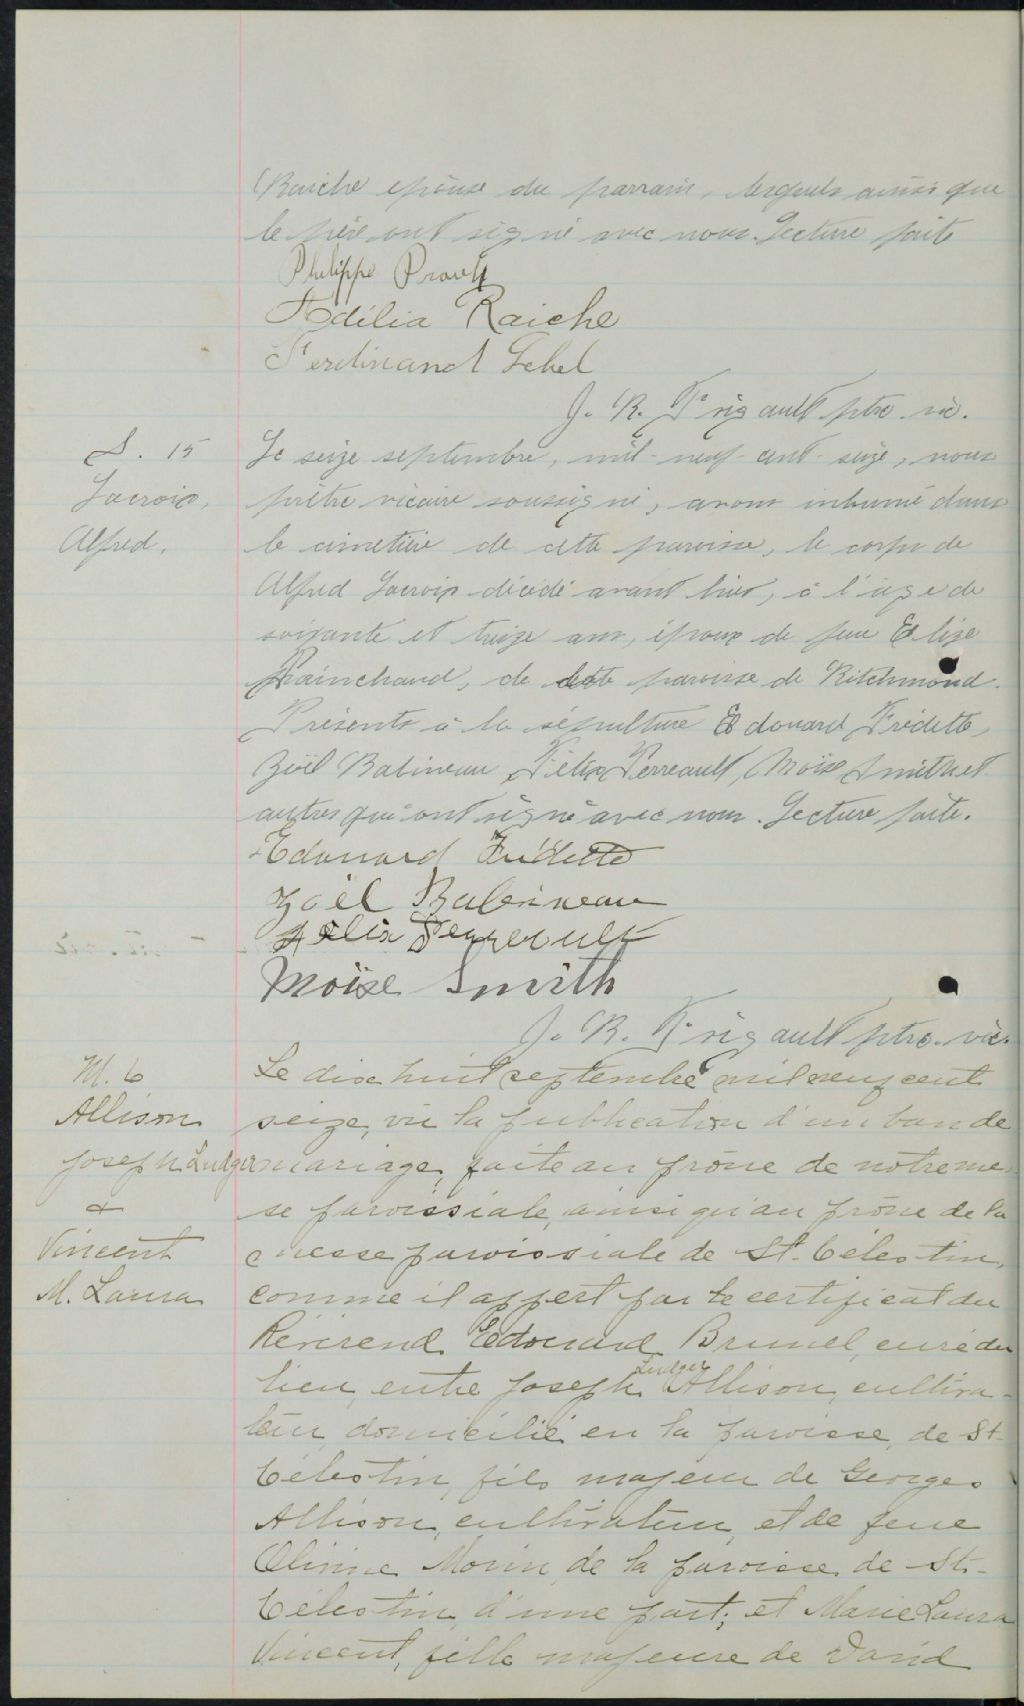 Raiche épouse du parrain, lesquels ainsi que
le père ont signé avec nous. Lecture faite
Philippe Proulx
Adélia Raiche
Ferdinand
J. R. Trigault ptre vic.
S. 15
Lacroix,
Alfred.
Le seize septembre, mil-neuf-cent-seize, nous
prêtre vicaire soussigné, avons inhumé dans
le cimetière de cette paroisse, le corps de
Alfred Lacroix décédé avant hier, à l'âge de
soixante et treize ans, époux de feue Elize
Painchaud, de cette paroisse de Ritchmond.
Présents à la sépulture Edouard Frédette,
Zoël Babineau, Félix Perreault, Moïse Smith et
autres qui ont signé avec nous. Lecture faite.
Edouard Frédette
Zoël Babineau
Félix Perreault
Moïse Smith
J. R. Trigault ptre. vic.
M. 6
Allison
Joseph Ludger
&
Vincent
M. Laura
Le dix huit septembre mil neuf cent
seize, vu la publication d'un ban de
mariage, faite au prône de notre mes
se paroissiale, ainsi qu'au prône de la
messe paroissiale de St. Célestin,
comme il appert par le certificat du
Révérend Edouard Brunel, curé du
lieu, entre Joseph Ludger Allison, cultiva-
teur, domicilié en la paroisse, de St-
Célestin, fils majeur de Georges
Allison, cultivateur, et de feue
Olivine Morin, de la paroisse de St-
Célestin, d'une part; et Marie Laura
Vincent, fille majeure de David